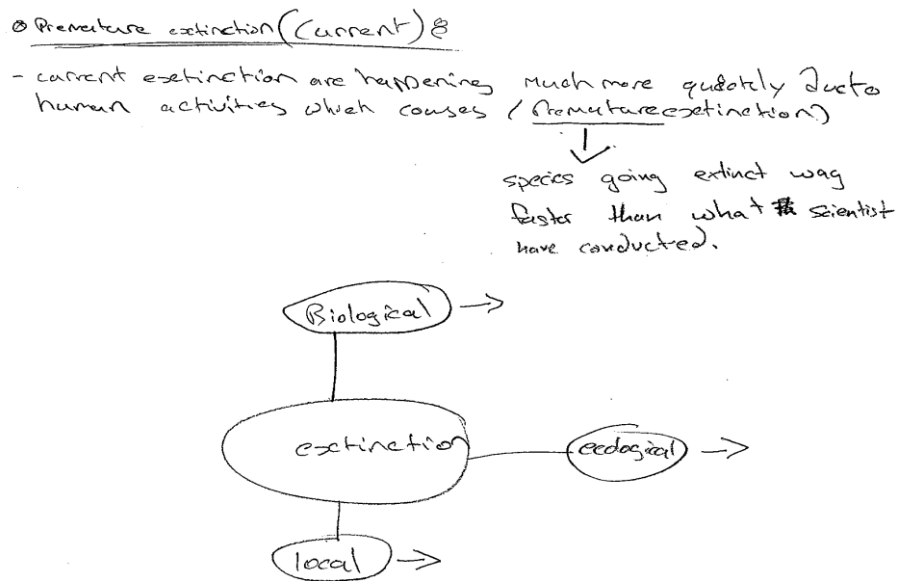 Premature extinction (Current) :
- current extinction are happening much more quickly due to
human activities which causes (Premature extinction)
species going extinct way
faster than what scientist
have conducted.
Biological
extinction
ecological
local